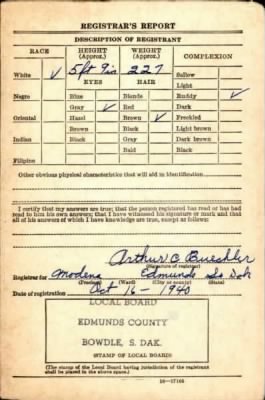 REGISTRAR'S REPORT
DESCRIPTION OF REGISTRANT
RACE HEIGHT (Approx.) WEIGHT (Approx.) COMPLEXION
White ✓ 5 ft 9 in 227 Sallow
EYES HAIR Light
Negro Blue Blonde Ruddy ✓
Gray ✓ Red Dark
Oriental Hazel Brown ✓ Freckled
Brown Black Light brown
Indian Black Gray Dark brown
Bald Black
Filipino
Other obvious physical characteristics that will aid in identification
I certify that my answers are true; that the person registered has read or has had
read to him his own answers; that I have witnessed his signature or mark and that
all of his answers of which I have knowledge are true, except as follows:
Arthur C Bueshler
(Signature of registrar)
Registrar for Modena Edmunds So Dak
(Precinct) (Ward) (City or county) (State)
Date of registration Oct 16 - 1940
LOCAL BOARD
EDMUNDS COUNTY
BOWDLE, S. DAK.
(STAMP OF LOCAL BOARD)
(The stamp of the Local Board having jurisdiction of the registrant
shall be placed in the above space.)
16-17105